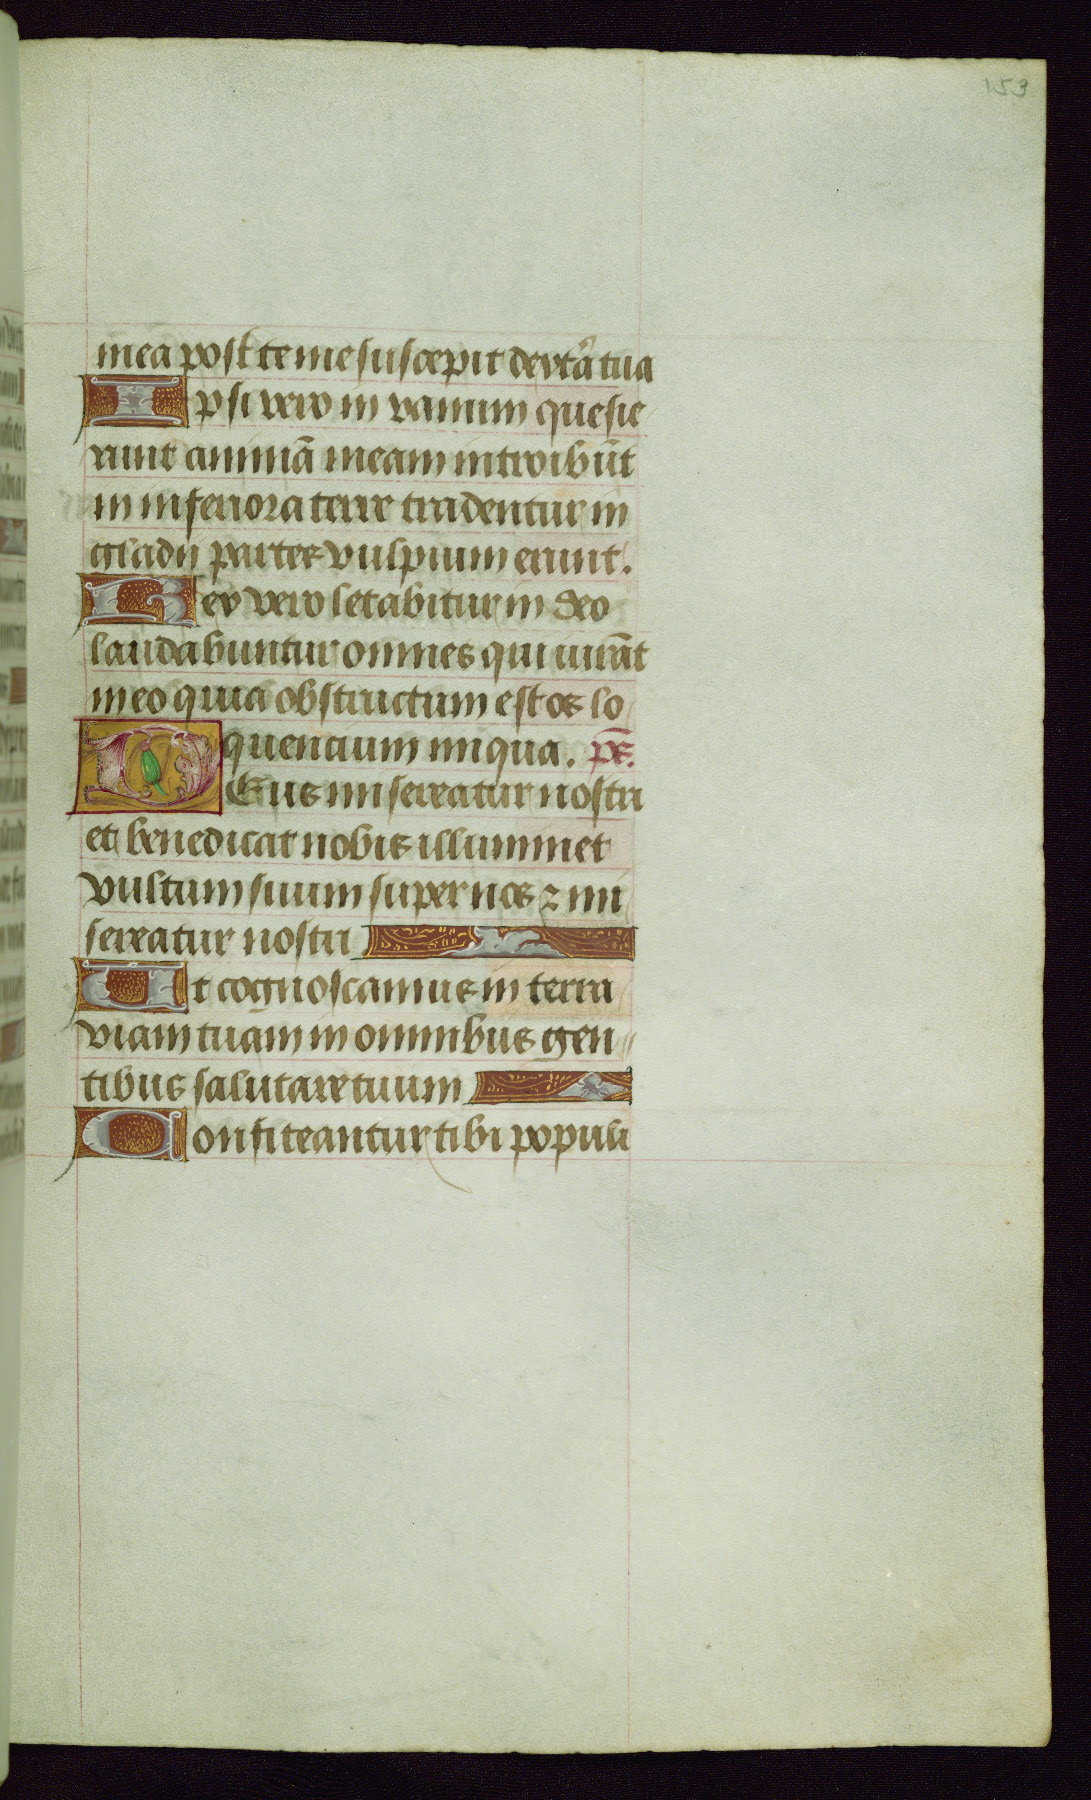 153
mea post te me suscepit dextĕra tua
Ipsi vero in vanum quesie
runt animā meam introibūt
in inferiora terre tradentur in
gladii partes vulpium erunt.
Rex vero letabitur in deo
laudabuntur omnes qui iurāt
in eo quia obstructum est os lo
quencium iniqua. ps.
Deus misereatur nostri
et benedicat nobis illuminet
vultum suum super nos ⁊ mi
sereatur nostri
Ut cognoscamus in terra
viam tuam in omnibus gen
tibus salutare tuum
Confiteantur tibi populi